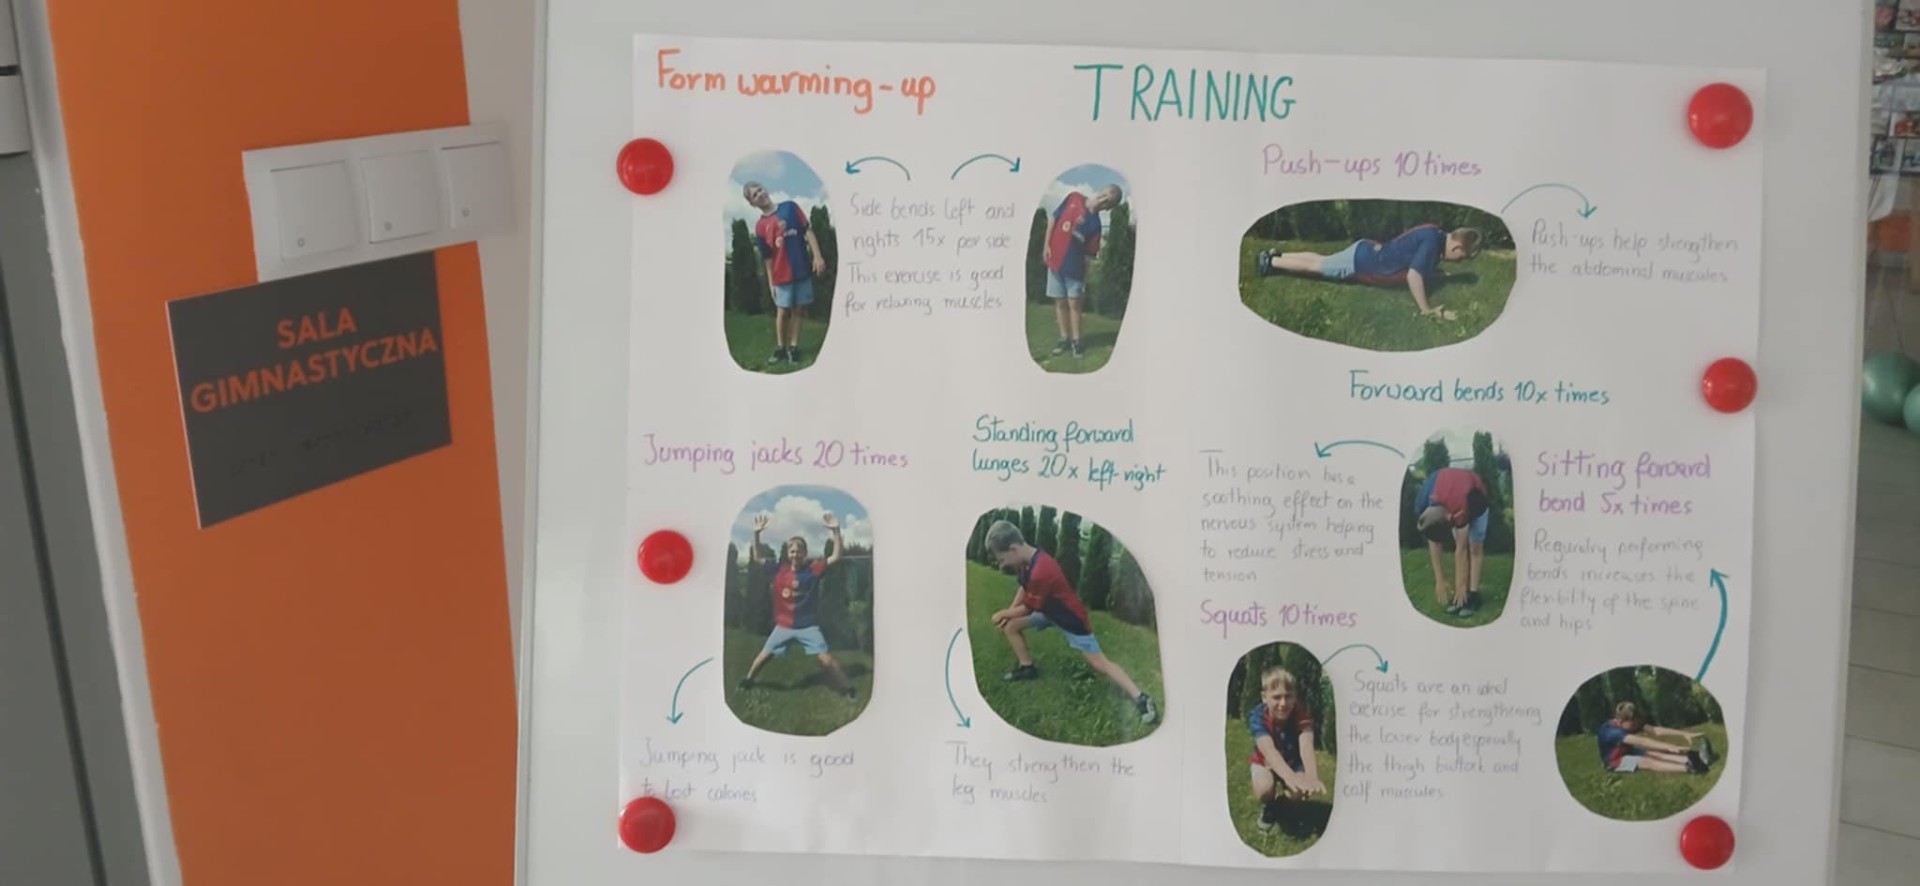 SALA
GIMNASTYCZNA
Form warming-up
TRAINING
Side bends left and
rights 15x per side
This exercise is good
for relaxing muscles
Push-ups 10 times
Push-ups help strengthen
the abdominal muscules
Jumping jacks 20 times
Jumping jack is good
to lost calories
Standing forward
lunges 20x left-right
They strengthen the
leg muscles
Forward bends 10x times
This position has a
soothing effect on the
nervous system helping
to reduce stress and
tension
Sitting forward
bend 5x times
performing
bends increases the
flexibility of the spine
and hips
Squats 10 times
Squats are an ideal
exercise for strengthening
the lower body especially
the thigh buttock and
calf muscules